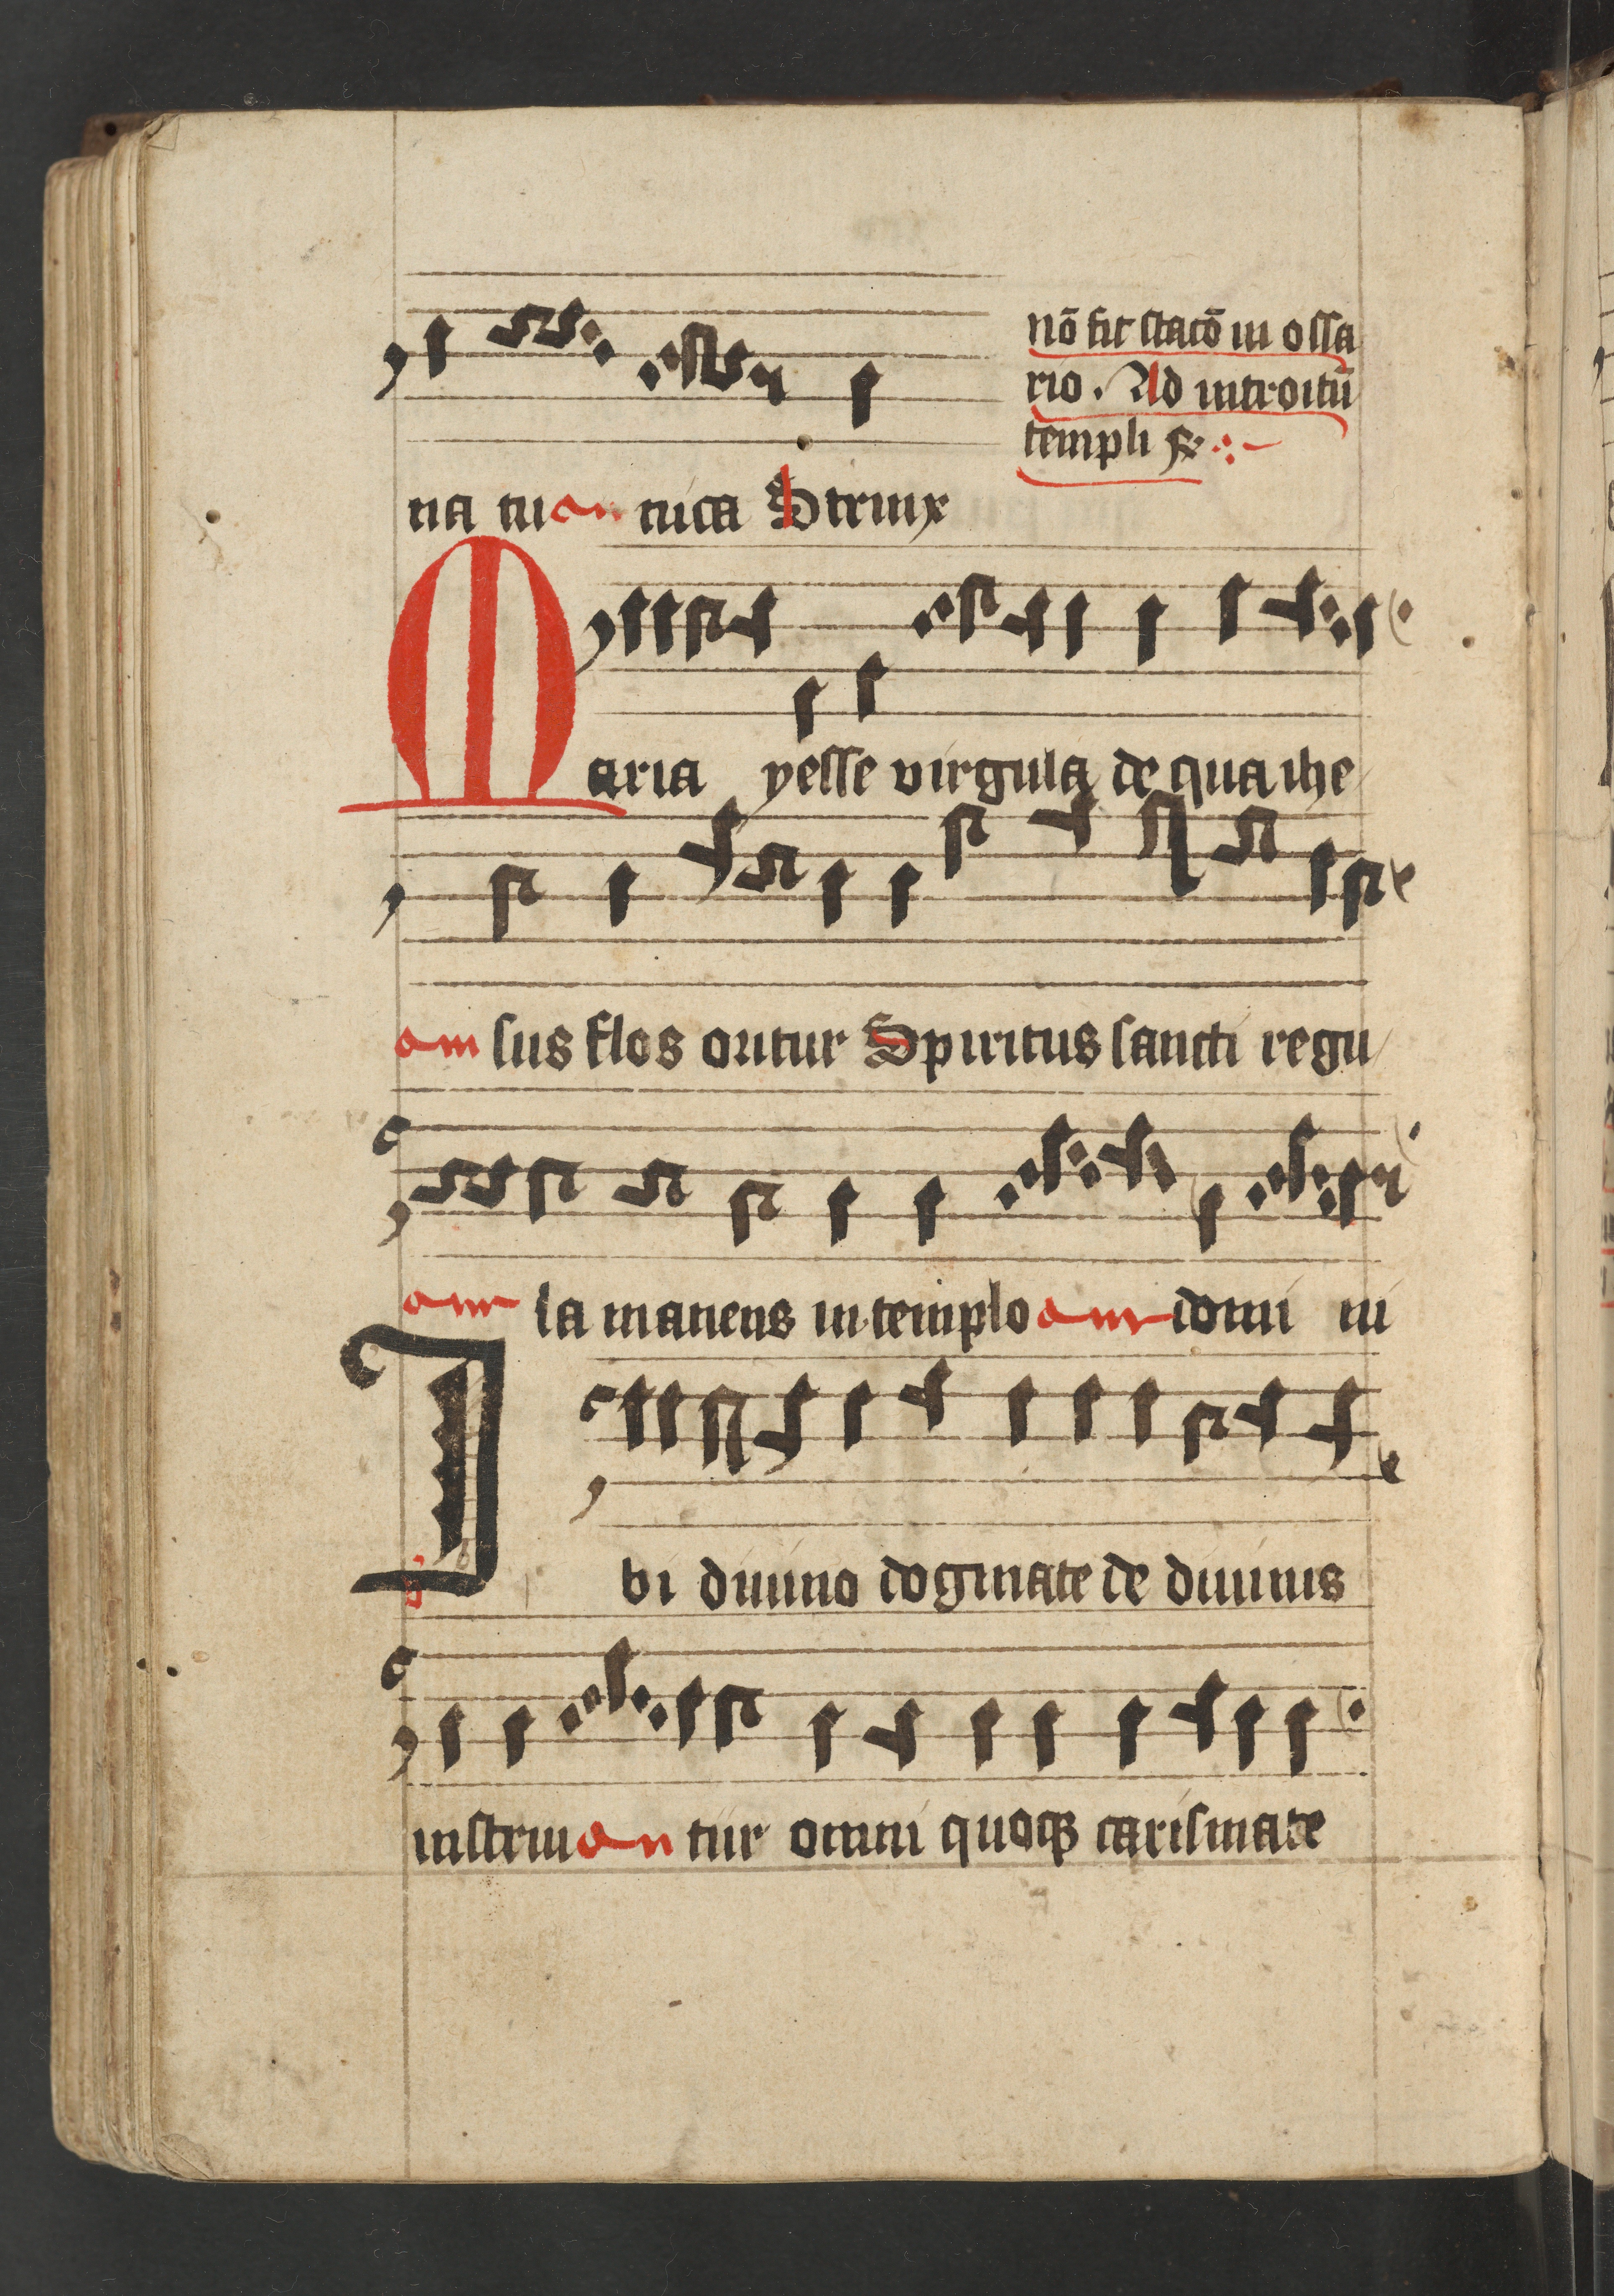 nō fit stacō in ossa
rio. Ad introitū
templi
na tu nica Strinx
Maria yesse virgula de qua ihe
sus flos oritur Spiritus sancti regu
la manens in templo domi ni
Ibi diuino dogmate de diuinis
instrui tur omni quoqꝫ carismate